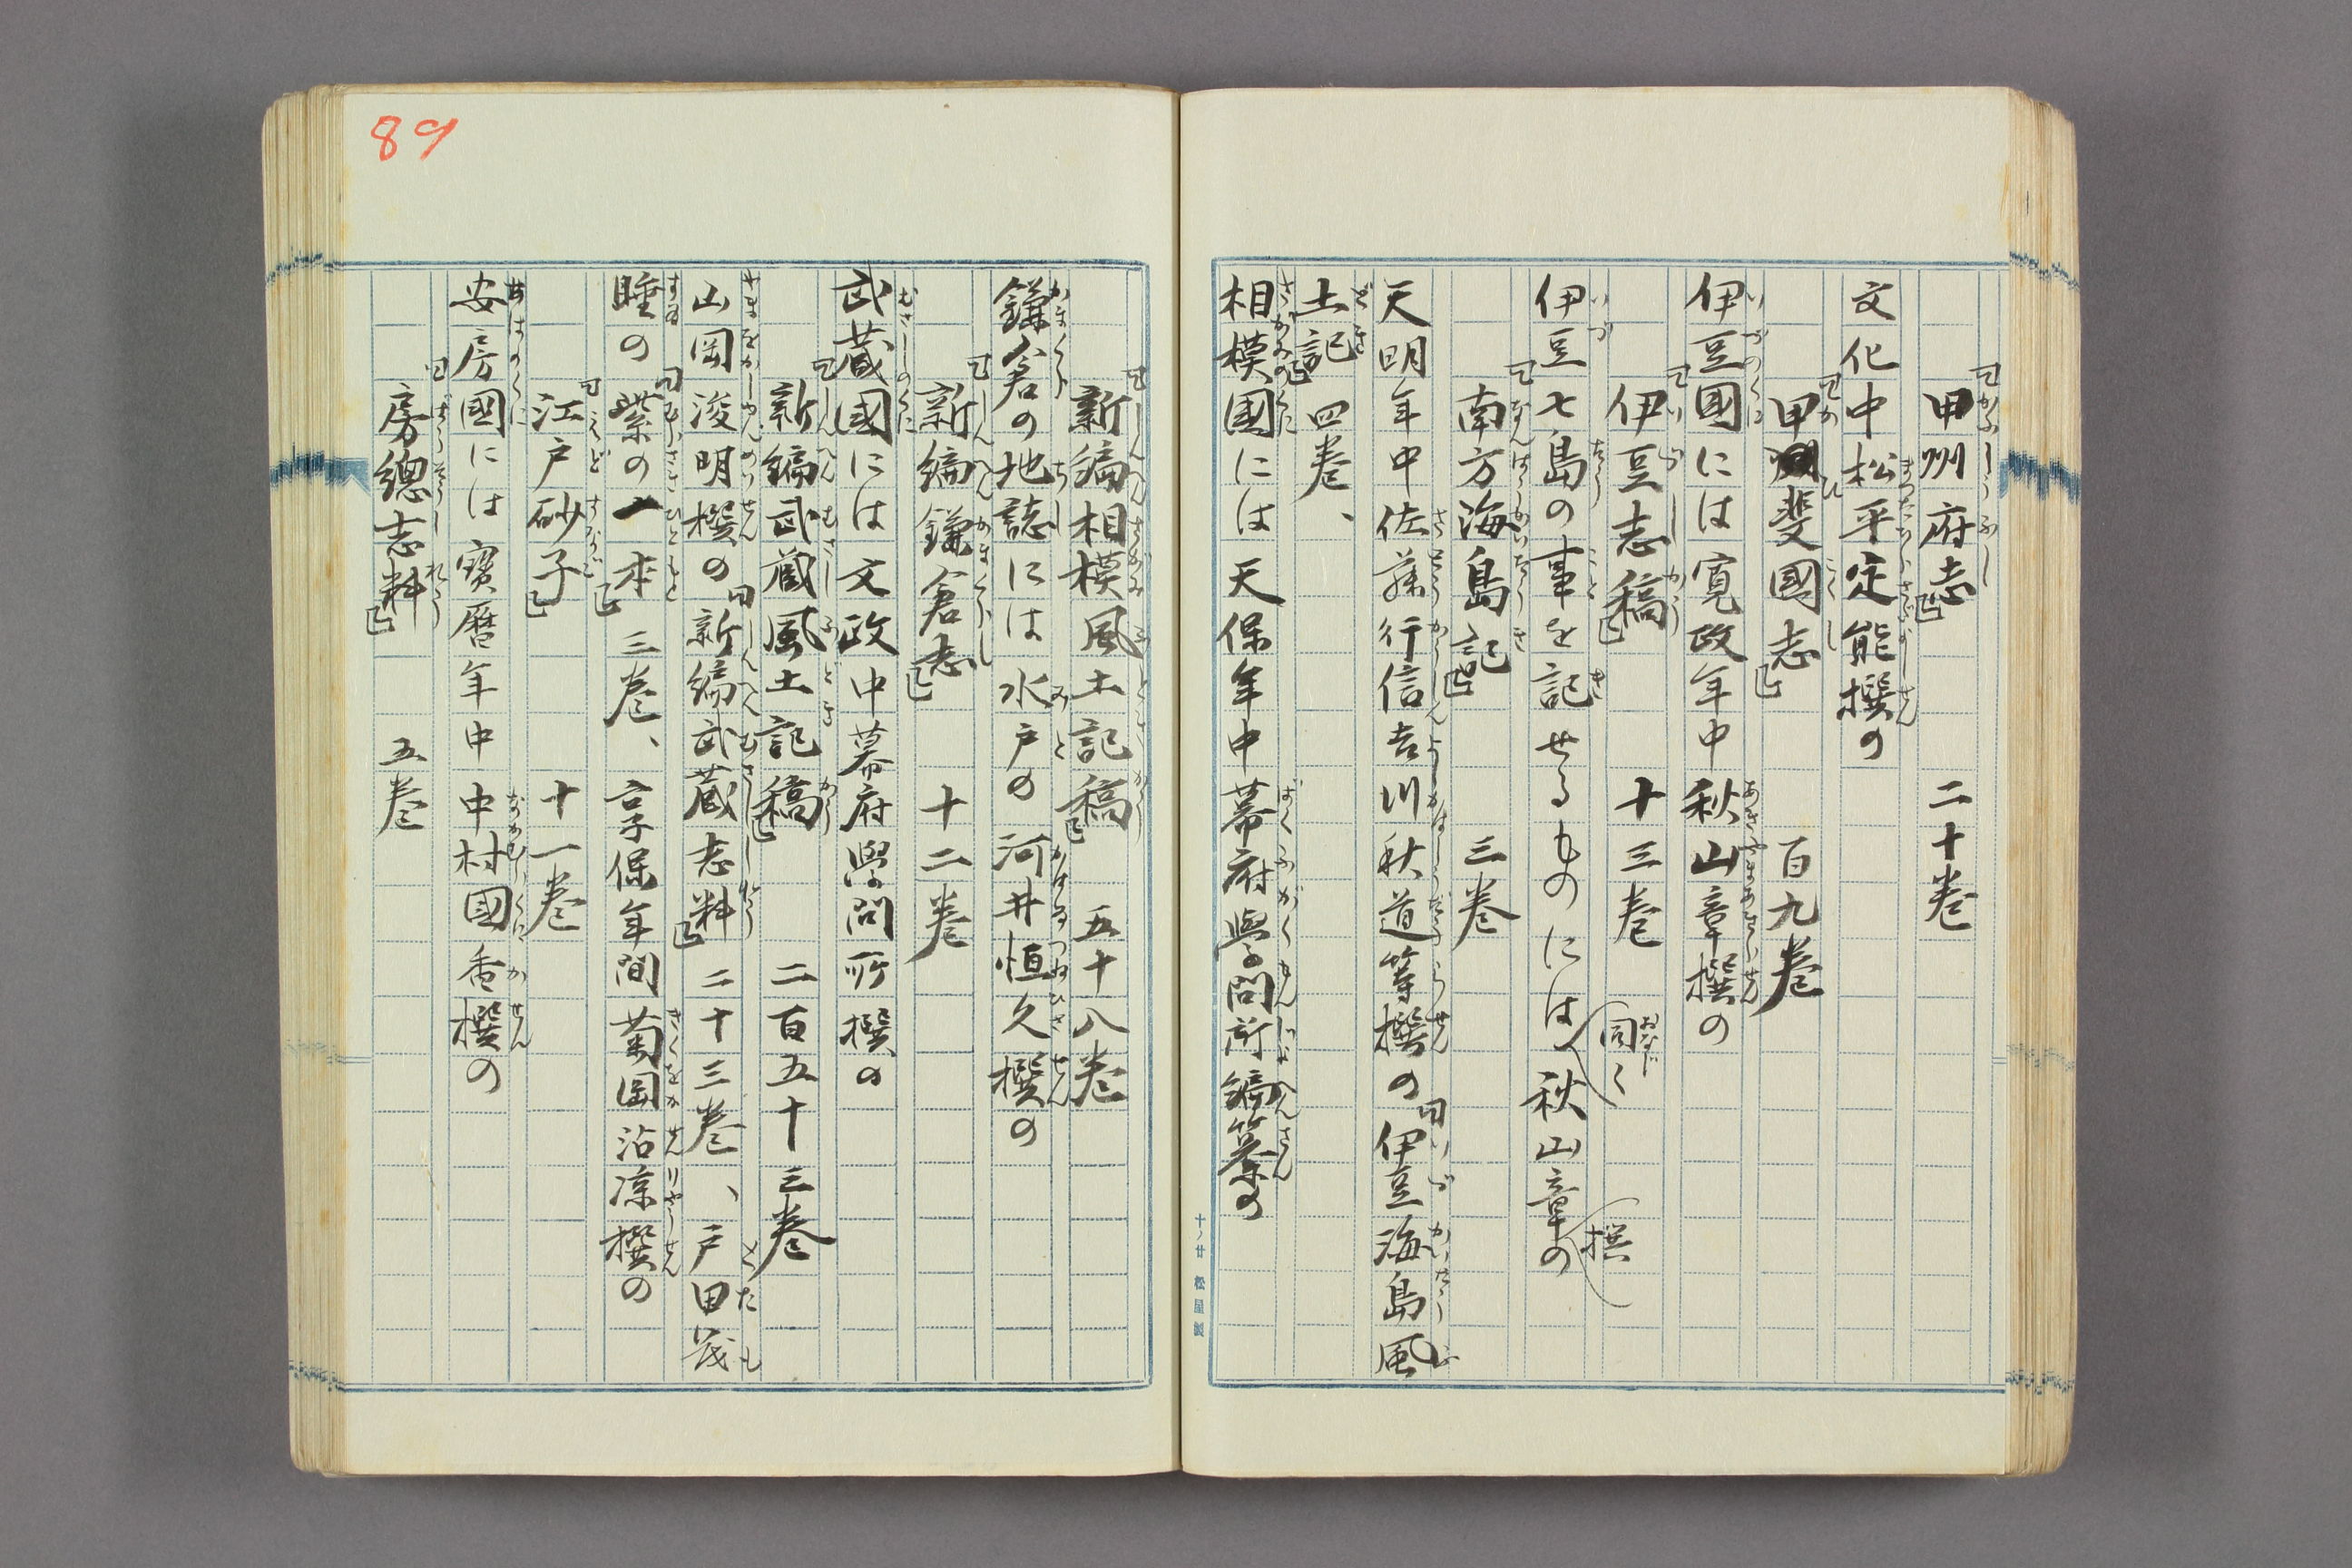 『甲州府志』　二十巻
文化中松平定能撰の
『甲斐國志』　百九巻
伊豆國には寛政年中秋山章撰の
『伊豆志稿』　十三巻
伊豆七島の事を記せるものには、同く秋山章撰の
『南方海島記』　三巻
天明年中佐藤行信吉川秋道等撰の『伊豆海島風
土記』四巻、
相模國には天保年中幕府學問所編纂の
十ノ廿 松屋製
『新編相模風土記稿』　五十八巻
鎌倉の地誌には水戸の河井恒久撰の
『新編鎌倉志』　十二巻
武蔵國には文政中幕府學問所撰の
『新編武蔵風土記稿』　二百五十三巻
山岡浚明撰の『新編武蔵志料』二十三巻、戸田茂
睡の『紫の一本』三巻、享保年間菊岡沾凉撰の
『江戸砂子』　十一巻
安房國には寶暦年中中村國香撰の
『房總志料』　五巻
89